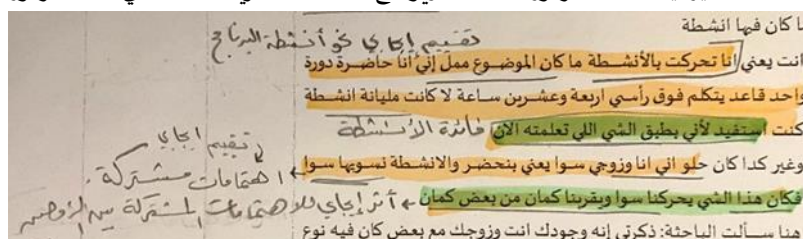 ما كان فيها انشطة
تقييم إيجابي نحو أنشطة البرنامج
انت يعني انا تحركت بالأنشطة ما كان الموضوع ممل إنيّ انا حاضرة دورة
واحد قاعد يتكلم فوق رأسي اربعة وعشرين ساعة لا كانت مليانة انشطة
كنت استفيد لأني بطبق الشي اللي تعلمته الآن
فائدة الأنشطة
تقييم إيجابي
وغير كدا كان حلو اني انا وزوجي سوا يعني بنحضر والانشطة نسويها سوا
اهتمامات مشتركة
فكان هذا الشي يحركنا سوا ويقربنا كمان من بعض كمان
أثر إيجابي للاهتمامات المشتركة بين الزوجين
هنا سألت الباحثة: ذكرتي إنه وجودك انت وزوجك مع بعض كان فيه نوع